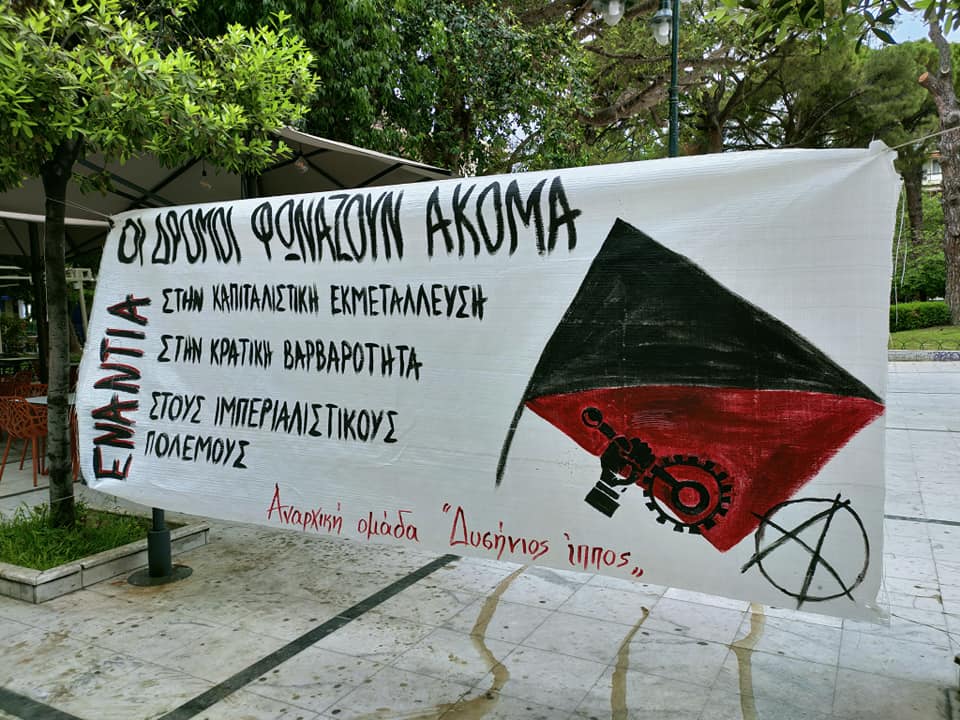 ΟΙ ΔΡΟΜΟΙ ΦΩΝΑΖΟΥΝ ΑΚΟΜΑ
ΕΝΑΝΤΙΑ
ΣΤΗΝ ΚΑΠΙΤΑΛΙΣΤΙΚΗ ΕΚΜΕΤΑΛΛΕΥΣΗ
ΣΤΗΝ ΚΡΑΤΙΚΗ ΒΑΡΒΑΡΟΤΗΤΑ
ΣΤΟΥΣ ΙΜΠΕΡΙΑΛΙΣΤΙΚΟΥΣ
ΠΟΛΕΜΟΥΣ
Αναρχική ομάδα "Δυσήνιος ίππος„